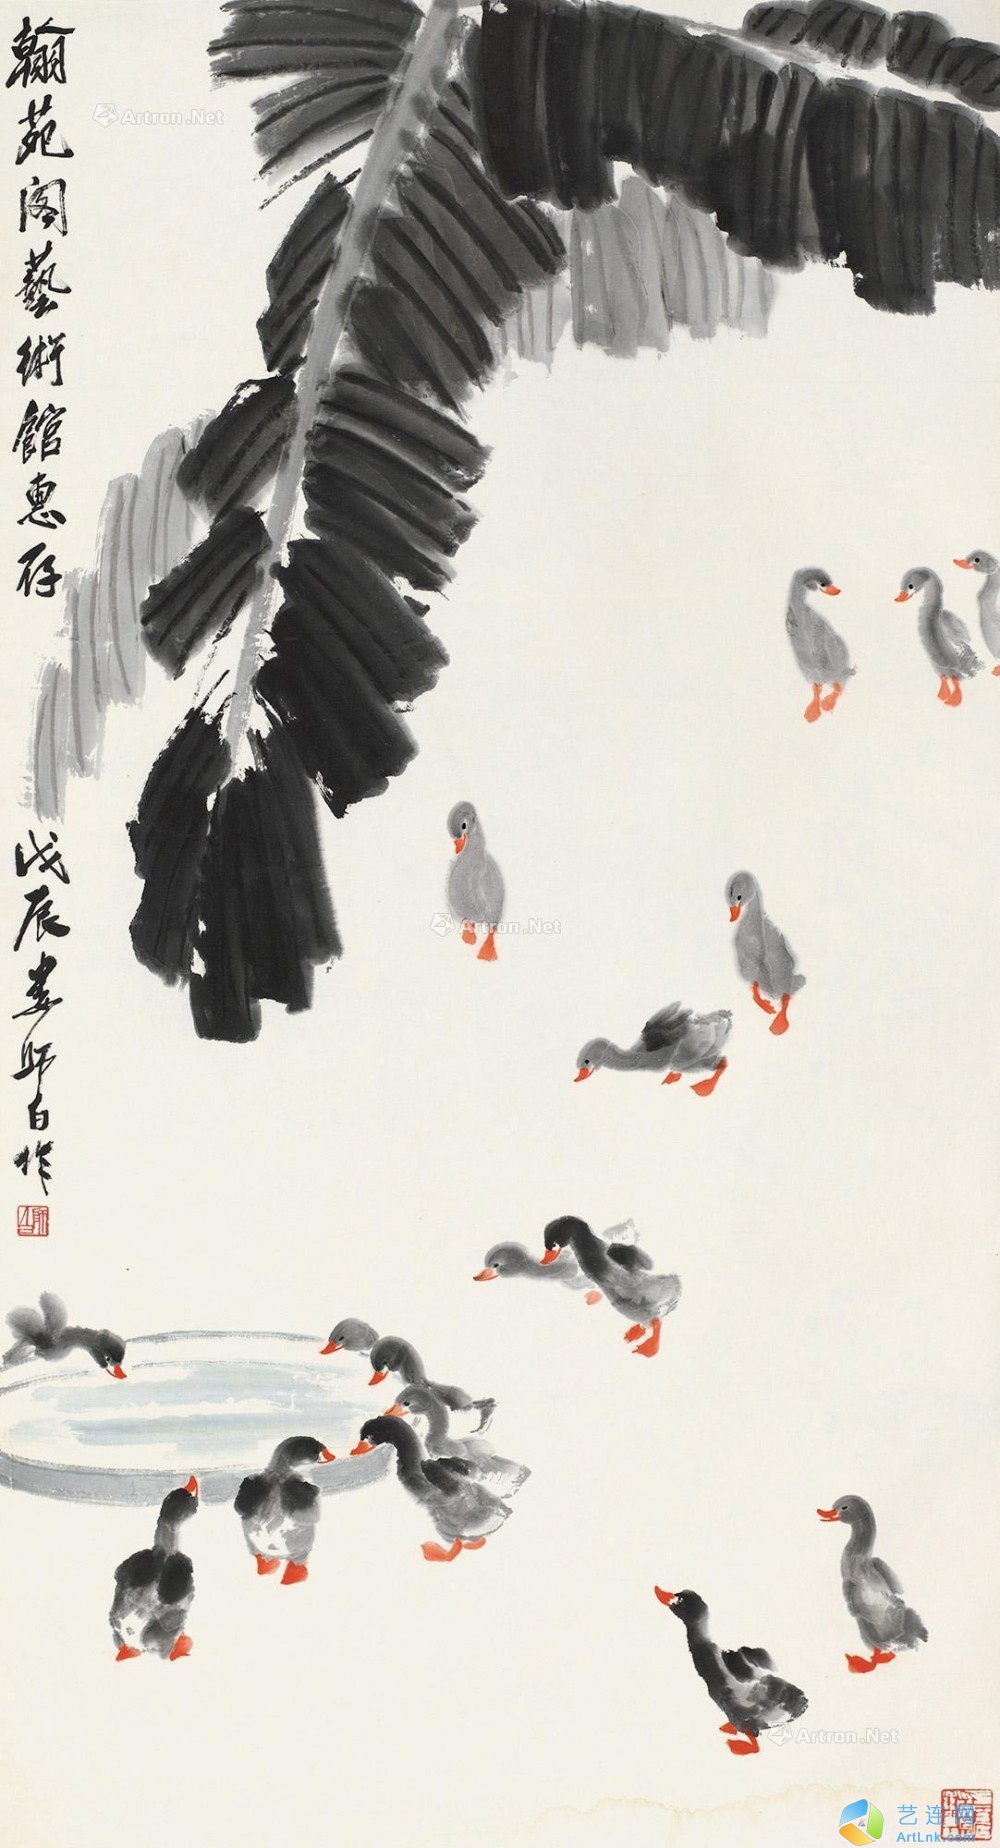 翰苑阁藝術館惠存
戊辰娄师白作
Artron.Net
Artron.Net
Artron.Net
艺连网
ArtLnk.com